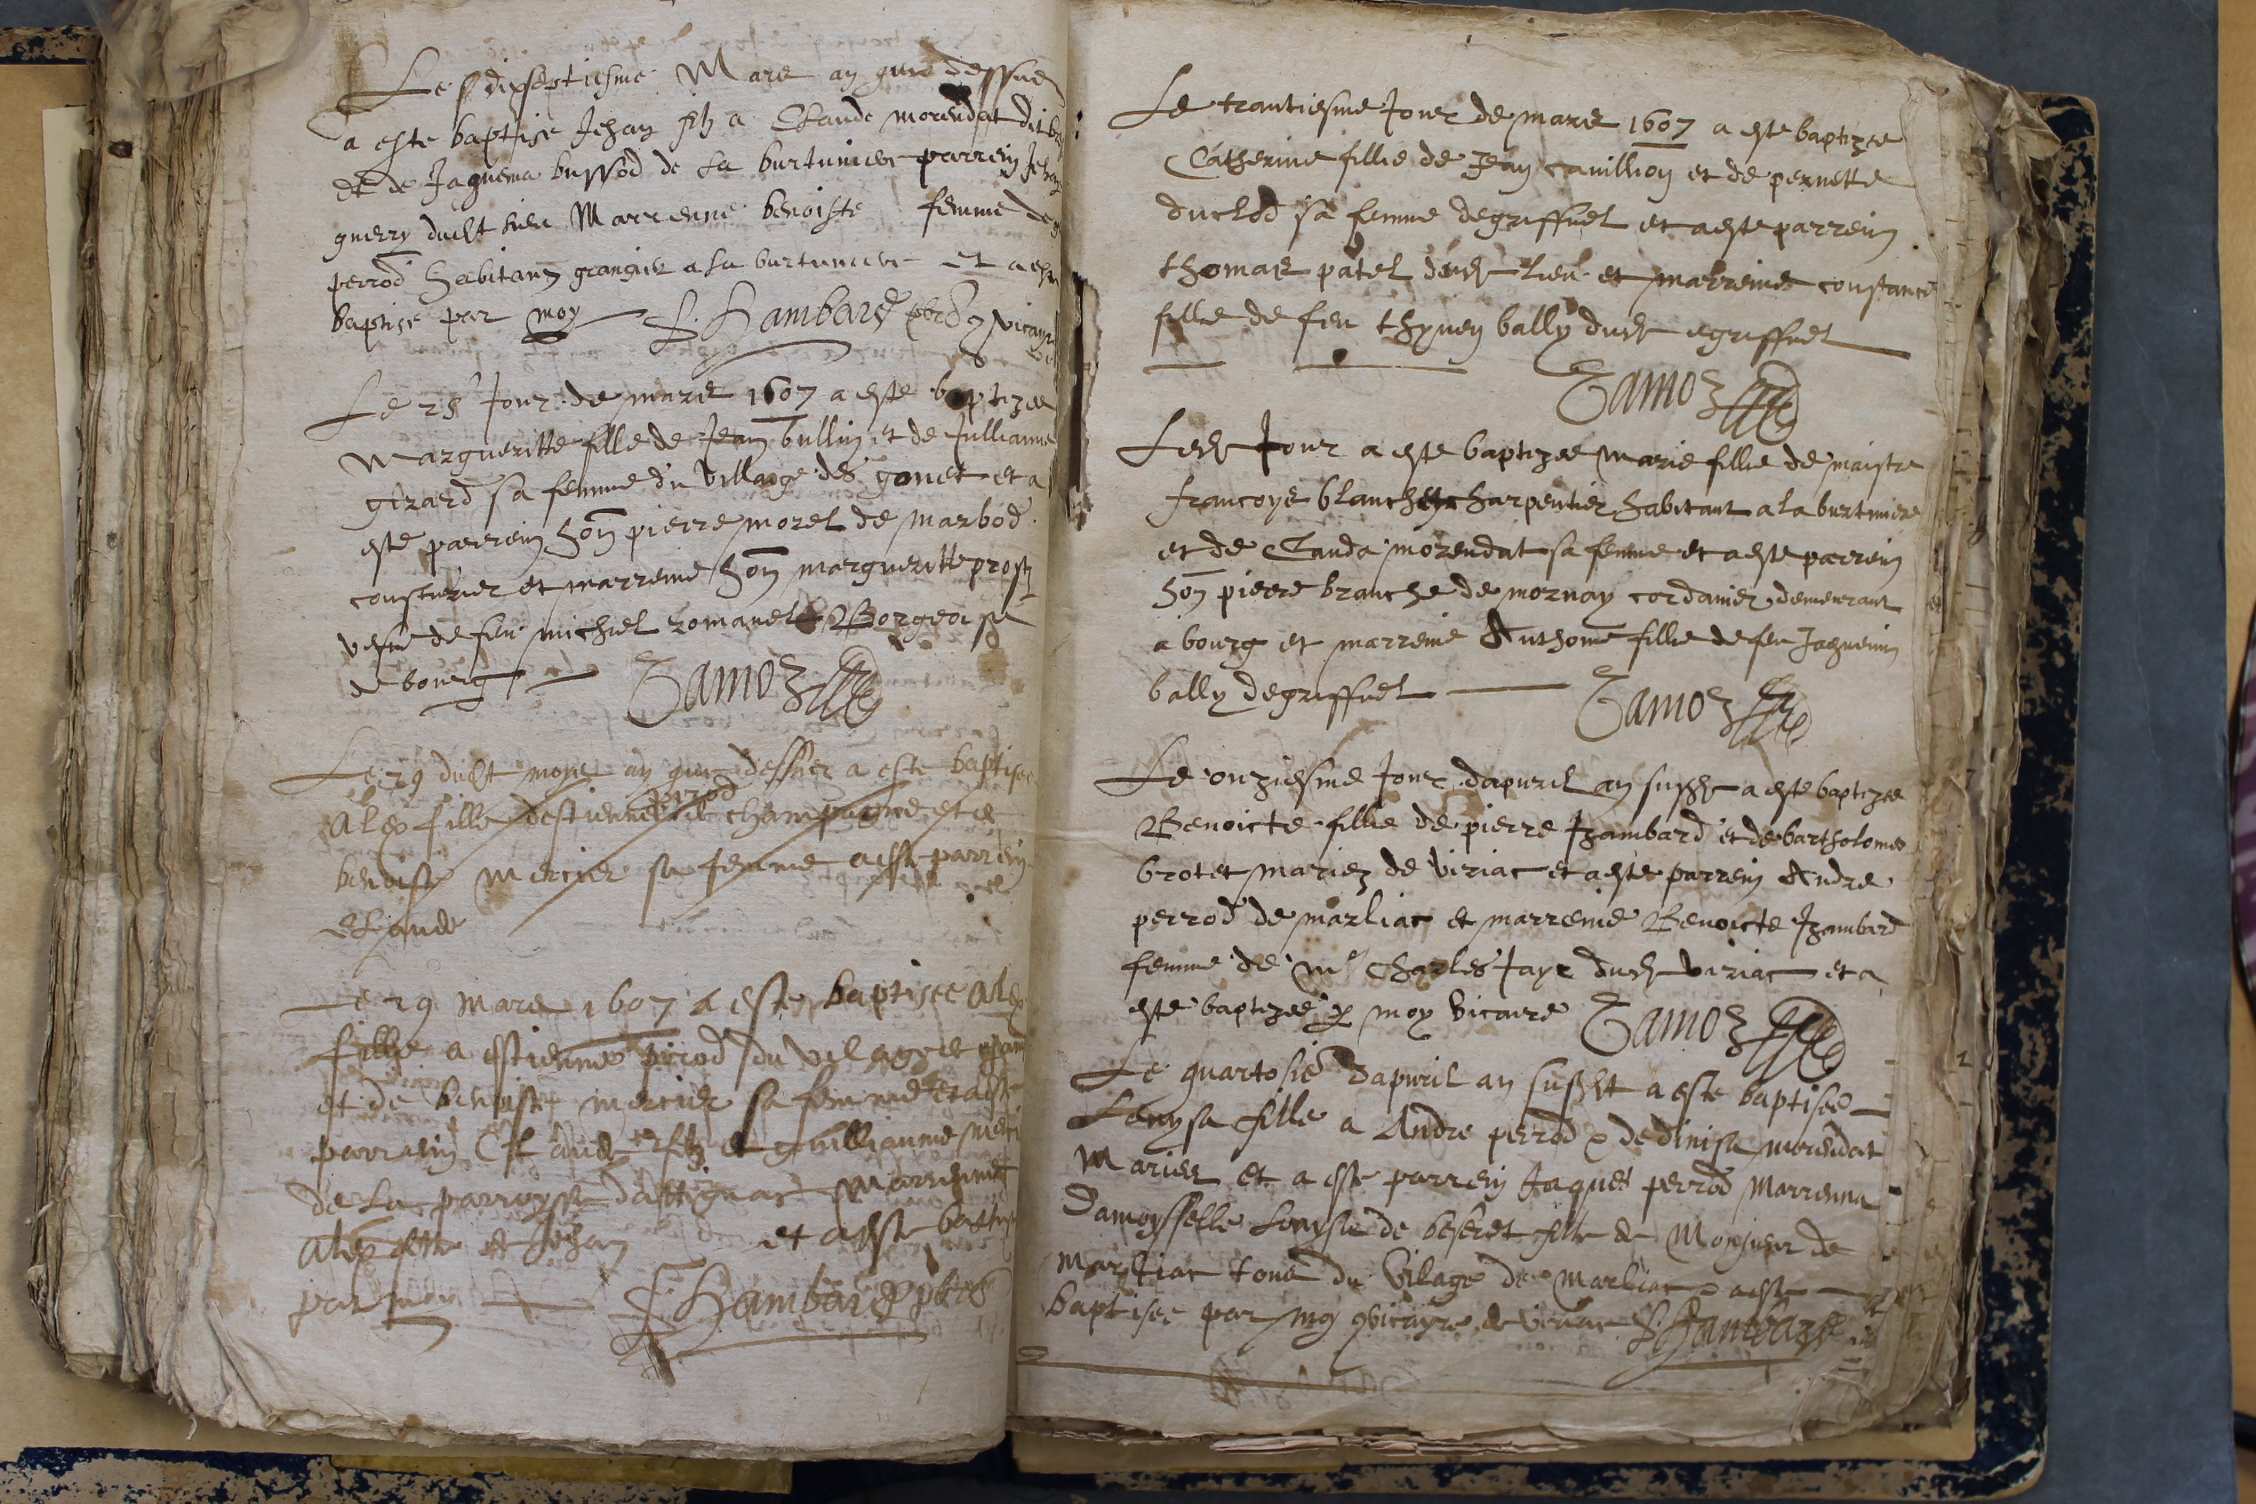 Le dixseptiesme Mars an que dessus
a este baptise Jehan filz a Claude morendat dit
et de Jaquema bussod de la burtiniere parrein Jehan
guerry dudt lieu Marrenne benoiste femme de
perrod habitant grangier a la burtiniere et a este
baptise par moy Hambard pbre vicayre
Le 28 Jour de mars 1607 a este baptizee
Margueritte fille de Jean bullin et de Jullianne
girard sa femme du village des gonet et a
este parrein hon pierre morel de marbod
cousturier et marreine hon margueritte prost
vefve de feu michiel romanet Borgeoise
de bourg Tamoz
Le 29 dudt moys an que dessus a este baptisee
Alex fille destienne perrod champagne et de
benoiste mercier sa femme a este parrein
Claude
Le 29 Mars 1607 a este baptisee Alex
fille a estienne perrod du vilage
et de benoiste mercier sa femme et a este
parrein Claude filz et guilliaume
de la parroysse dattignat Marrenne
Alex et Jehan et a este baptise
par moy Hambard pbre
Le trantiesme Jour de mars 1607 a este baptizee
Catherine fillie de Jean cavillion et de pernette
duclod sa femme degriffuel et a este parrein
thomas patel dud lieu et marreine constance
fillie de feu thyven bally dud egriffuel
Tamoz
Led Jour a este baptizee marie fillie de maistre
francoys blanchet charpentier habitant a la burtiniere
et de Clauda morendat sa femme et a este parrein
hon pierre branche de mornay cordanier demeurant
a bourg et marreine Anthoine fillie de feu Jaquemin
bally degriffuel Tamoz
Le onziesme Jour dapvril an susd a este baptizee
Benoicte fillie de pierre Jzambard et de bartholomee
brotet mariez de viriac et a este parrein Andre
perrod de marliac et marreine Benoicte Jzambard
femme de me Charles Jayr dud viriac et a
este baptizee p moy vicaire Tamoz
Le quartosie dapvril an susdt a este baptisee
Louysa fille a Andre perrod & de dinisa morendat
Maries et a este parrein Jaques perrod Marrenna
Damoysselle Louyse de beseret fille de Monsieur de
Marliac tous du Vilage de Marliac & a este
baptisee par moy vicayre de viriac Hambard